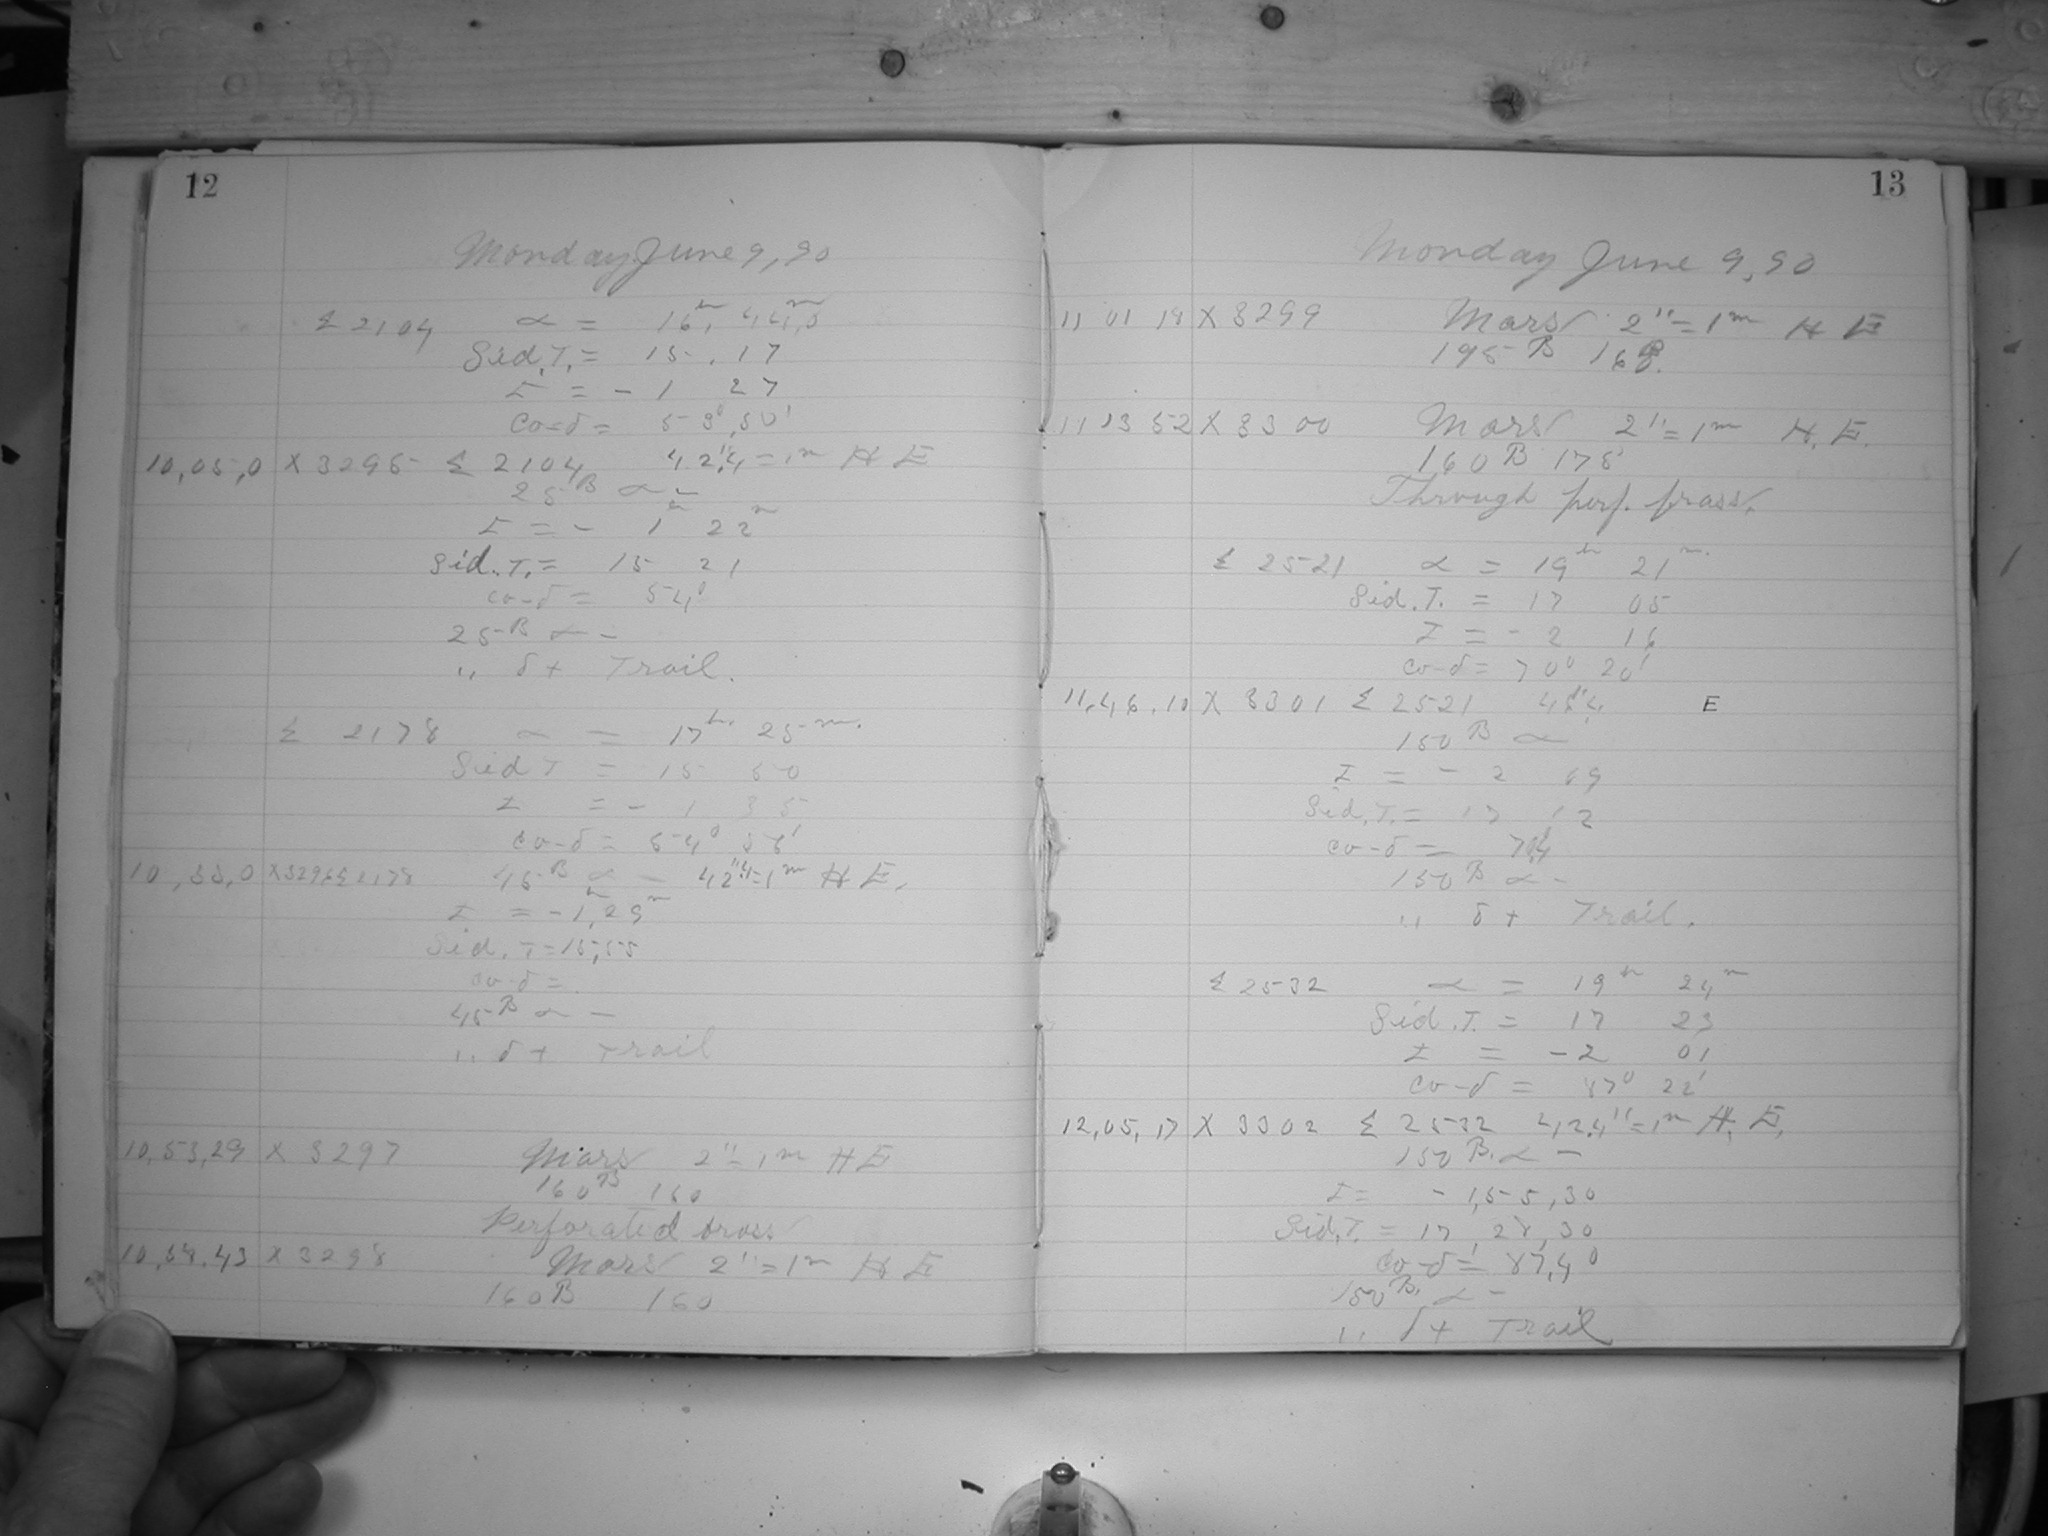 12
Monday June 9, 90
Σ 2104 α = 16h, 44m,5
Sid. T. = 15 . 17
I = - 1 27
Co-δ = 53°,50'
10,05,0 X 3295 Σ 2104 42",4 = 1m H E
25 B α -
I = - 1h 22m
Sid. T. = 15 21
co-δ = 54°
25 B α -
" δ + Trail.
Σ 2178 α = 17h. 25m.
Sid T = 15 50
I = - 1 35
co-δ = 54° 56'
10,33,0 X 3296 Σ 2178 45 B α - 42",4 = 1m H E.
I = - 1h, 29m
Sid. T = 15,55
co-δ =
45 B α -
" δ + Trail
10,53,29 X 3297 Mars 2" = 1m H E
160 B 160
Perforated brass
10,58,43 X 3298 Mars 2" = 1m H E
160 B 160
13
Monday June 9, 90
11 01 18 X 3299 Mars 2" = 1m H E
195 B 168.
11 13 52 X 3300 Mars 2" = 1m H. E.
160 B 178
Through perf. brass.
Σ 2521 α = 19h 21m.
Sid. T. = 17 05
I = - 2 16
co-δ = 70° 20'
11,46,10 X 3301 Σ 2521 E
150 B α
I = - 2 09
Sid. T. = 17 12
co-δ =
150 B α -
" δ + Trail.
Σ 2532 α = 19h 24m
Sid. T. = 17 23
I = - 2 01
co-δ = 87° 22'
12,05,17 X 3302 Σ 2532 42,4" = 1m H. E.
150 B. α -
I = - 1,55,30
Sid. T. = 17, 28, 30
co-δ = 87,4°
150 B. α -
" δ + Trail